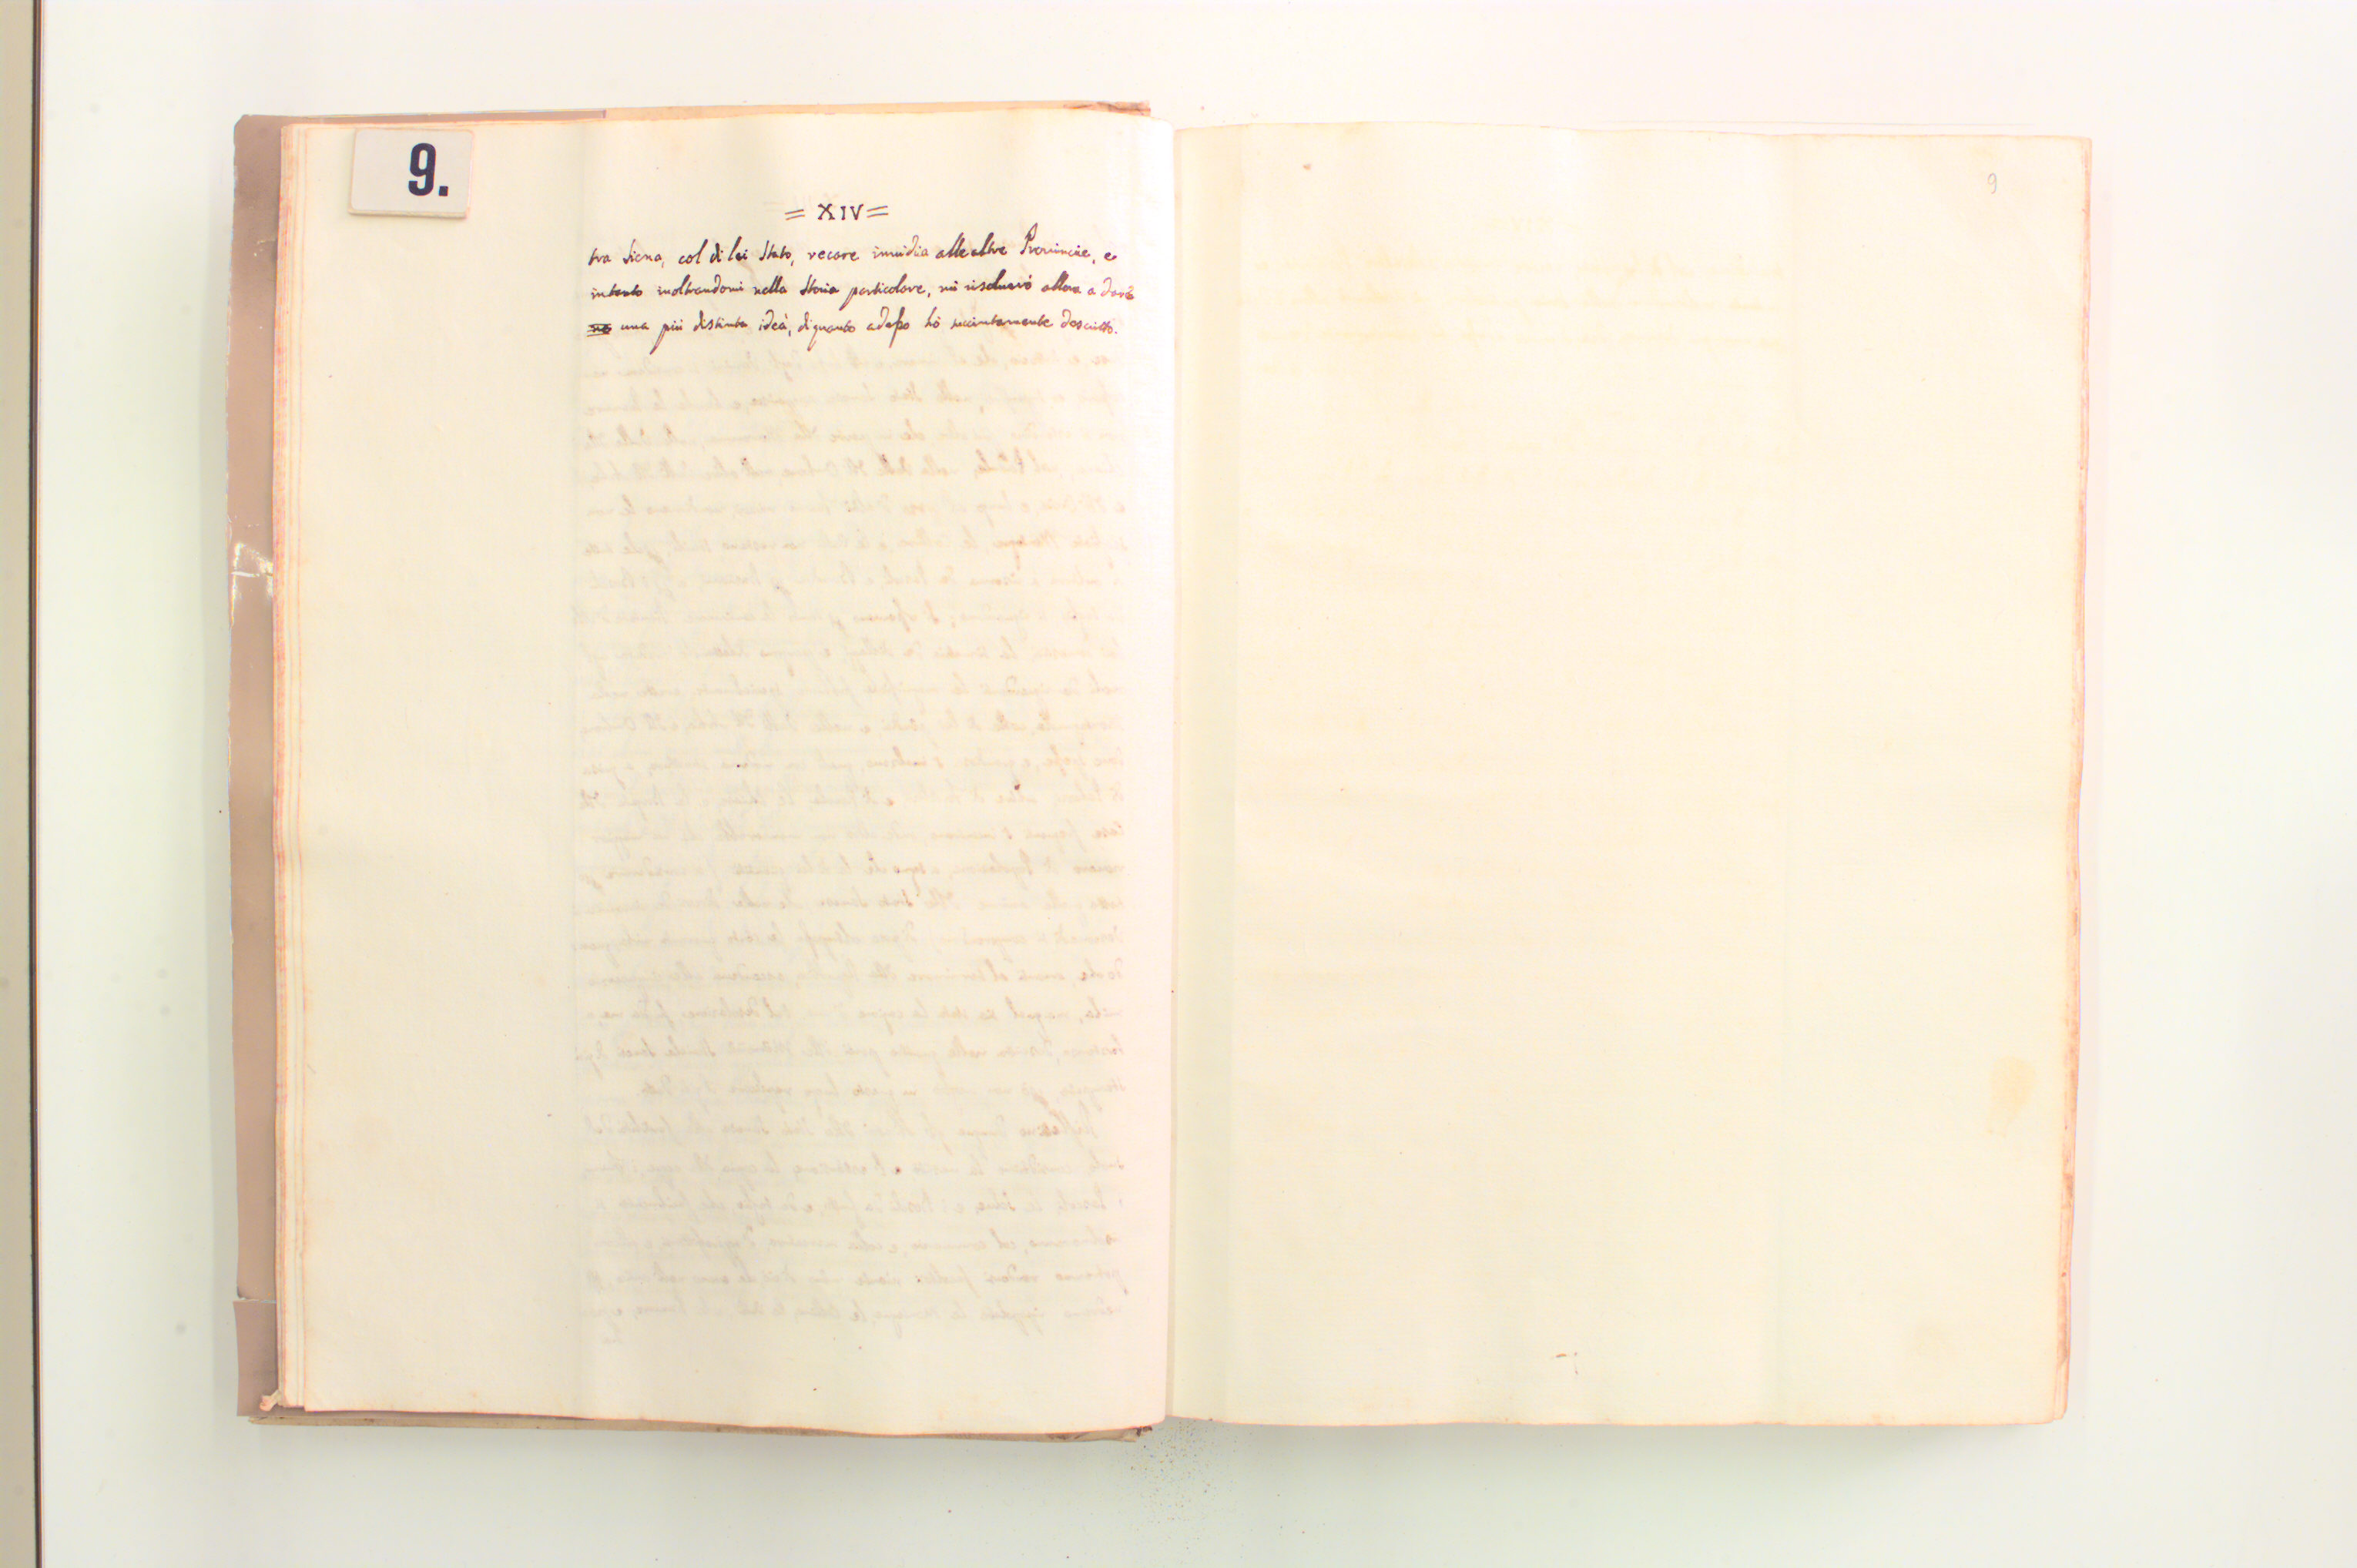 9.
= XIV =
tra Siena, col di lei Stato, recare invidia alle altre Provincie, e
intanto inoltrandomi nella Storia particolare, mi riserverò allora a dar
una più distinta idea, di quanto adesso hò succintamente descritto.
9